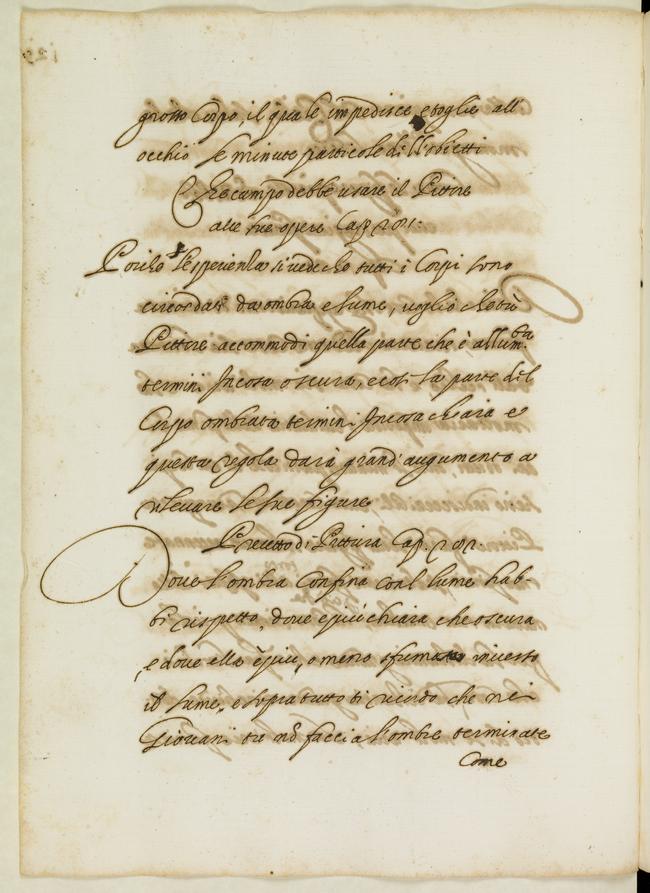 grosso Corpo, il quale impedisce, e toglie all
occhio le minute particole delli obietti
Che campo debbe usare il Pittore
alle sue opere Cap. 201.
Poiche p l'esperienza si vede che tutti i Corpi sono
circondati da ombra e lume, voglio che tù
Pittore accommodi quella parte che è allumta
termini In cosa oscura, e così la parte del
Corpo ombrata termini In cosa chiara e
questa regola darà grand' augumento a
rilevare le tue figure
Precetto di Pittura Cap. 202.
Dove l'ombra Confina con l lume hab-
bi rispetto, dove è più chiara che oscura
, e dove ella è più, o meno sfumata inverso
il lume, e sopra tutto ti ricordo che nei
Giovani tu nō faccia l'ombre terminate
Come